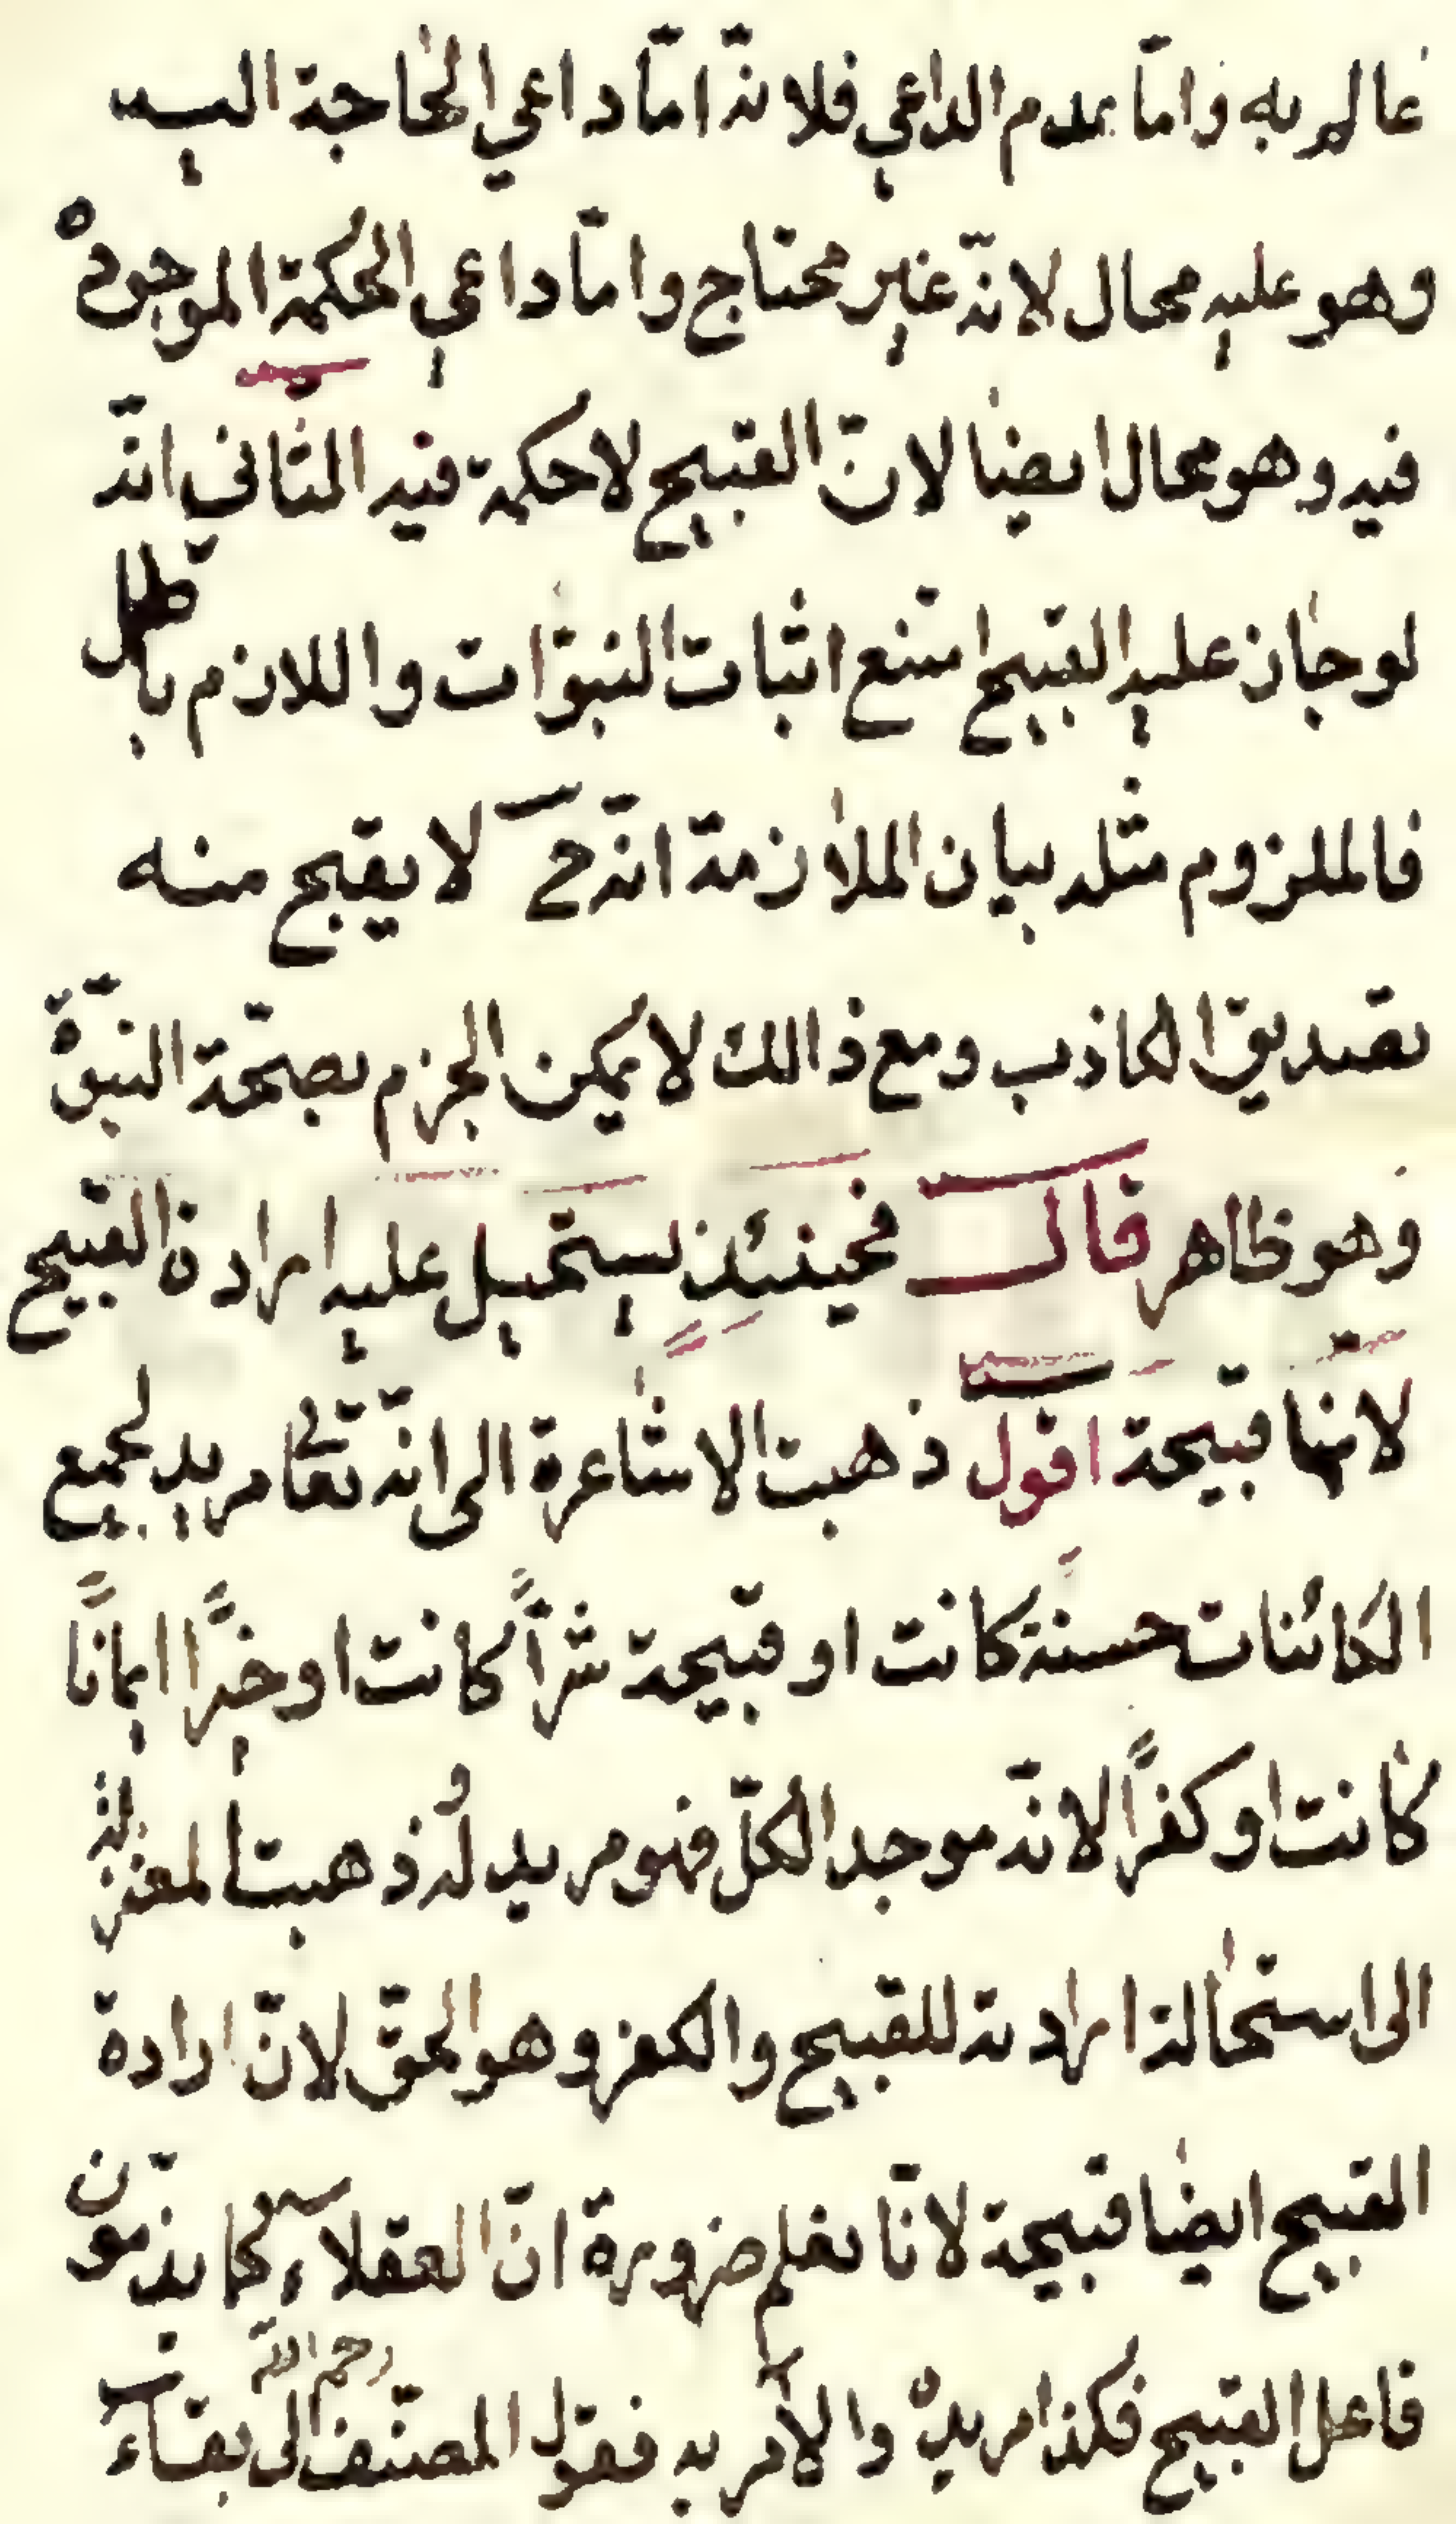 عالم به واما بعدم الداعي فلانّه امّا داعي الحاجة اليه
وهو عليه محال لانّه غير محتاج وامّا داعي الحكمة الموجودة
فيه وهو محال ايضا لانّ القبيح لا حكمة فيه الثاني انّه
لو جاز عليه القبيح امتنع اثبات النبوّات واللازم باطل
فالملزوم مثله بيان الملازمة انّه ح لا يقبح منه
تصديق الكاذب ومع ذالك لا يمكن الجزم بصحّة النبوّة
وهو ظاهر قال فحينئذ يستحيل عليه ارادة القبيح
لانّها قبيحة اقول ذهبت الاشاعرة الى انّه تعا مريد لجميع
الكائنات حسنة كانت او قبيحة شرّاً كانت او خيراً ايماناً
كانت او كفراً لانّه موجد الكلّ فهو مريد له وذهبت المعتزلة
الى استحالة ارادته للقبيح والكفر وهو الحقّ لانّ ارادة
القبيح ايضا قبيحة لانّا نعلم ضرورة انّ العقلاء كما يذمّون
فاعل القبيح فكذا مريده والامر به فقول المصنّف رحمه الله الى بفاء